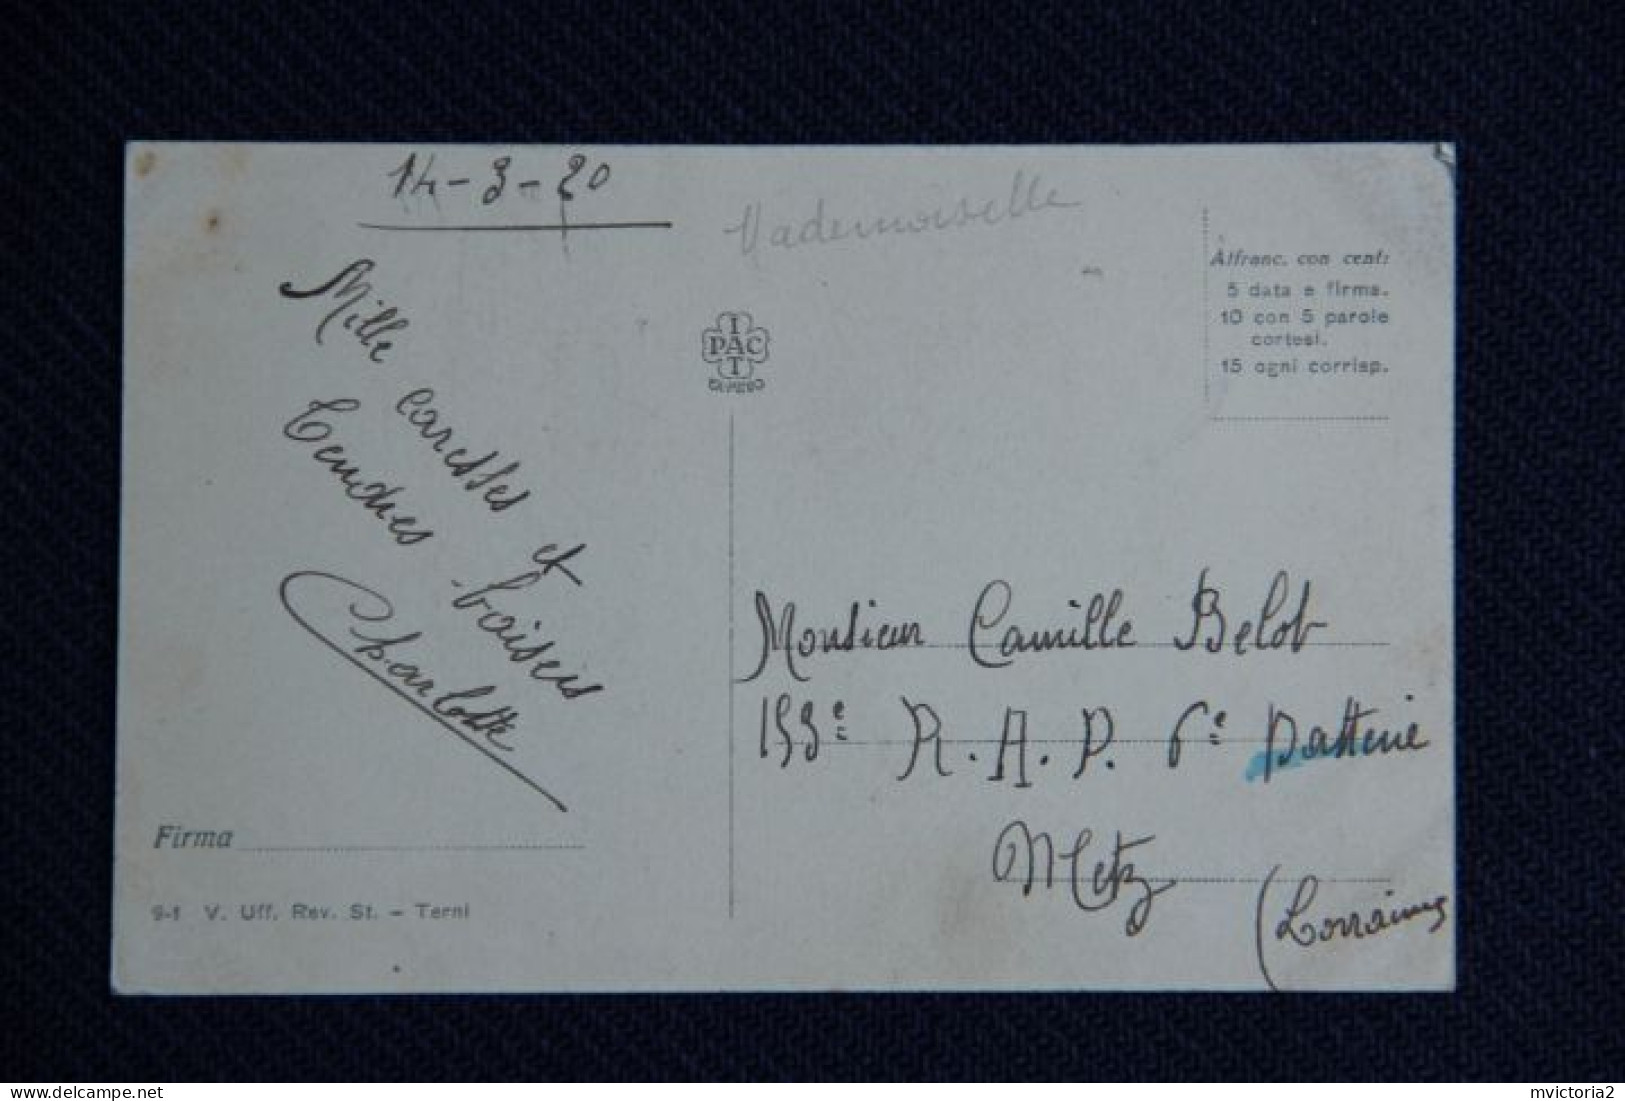 14-3-20
Mille caresses et
Tendres baisers
Charlotte
Firma
9-1 V. Uff. Rev. St. - Terni
Mademoiselle
I
PAC
T
Affranc. con cent:
5 data e firma.
10 con 5 parole
cortesi.
15 ogni corrisp.
Monsieur Camille Belot
153e R.A.P. 6e Batterie
Metz
(Lorraine)
www.delcampe.net
mvictoria2